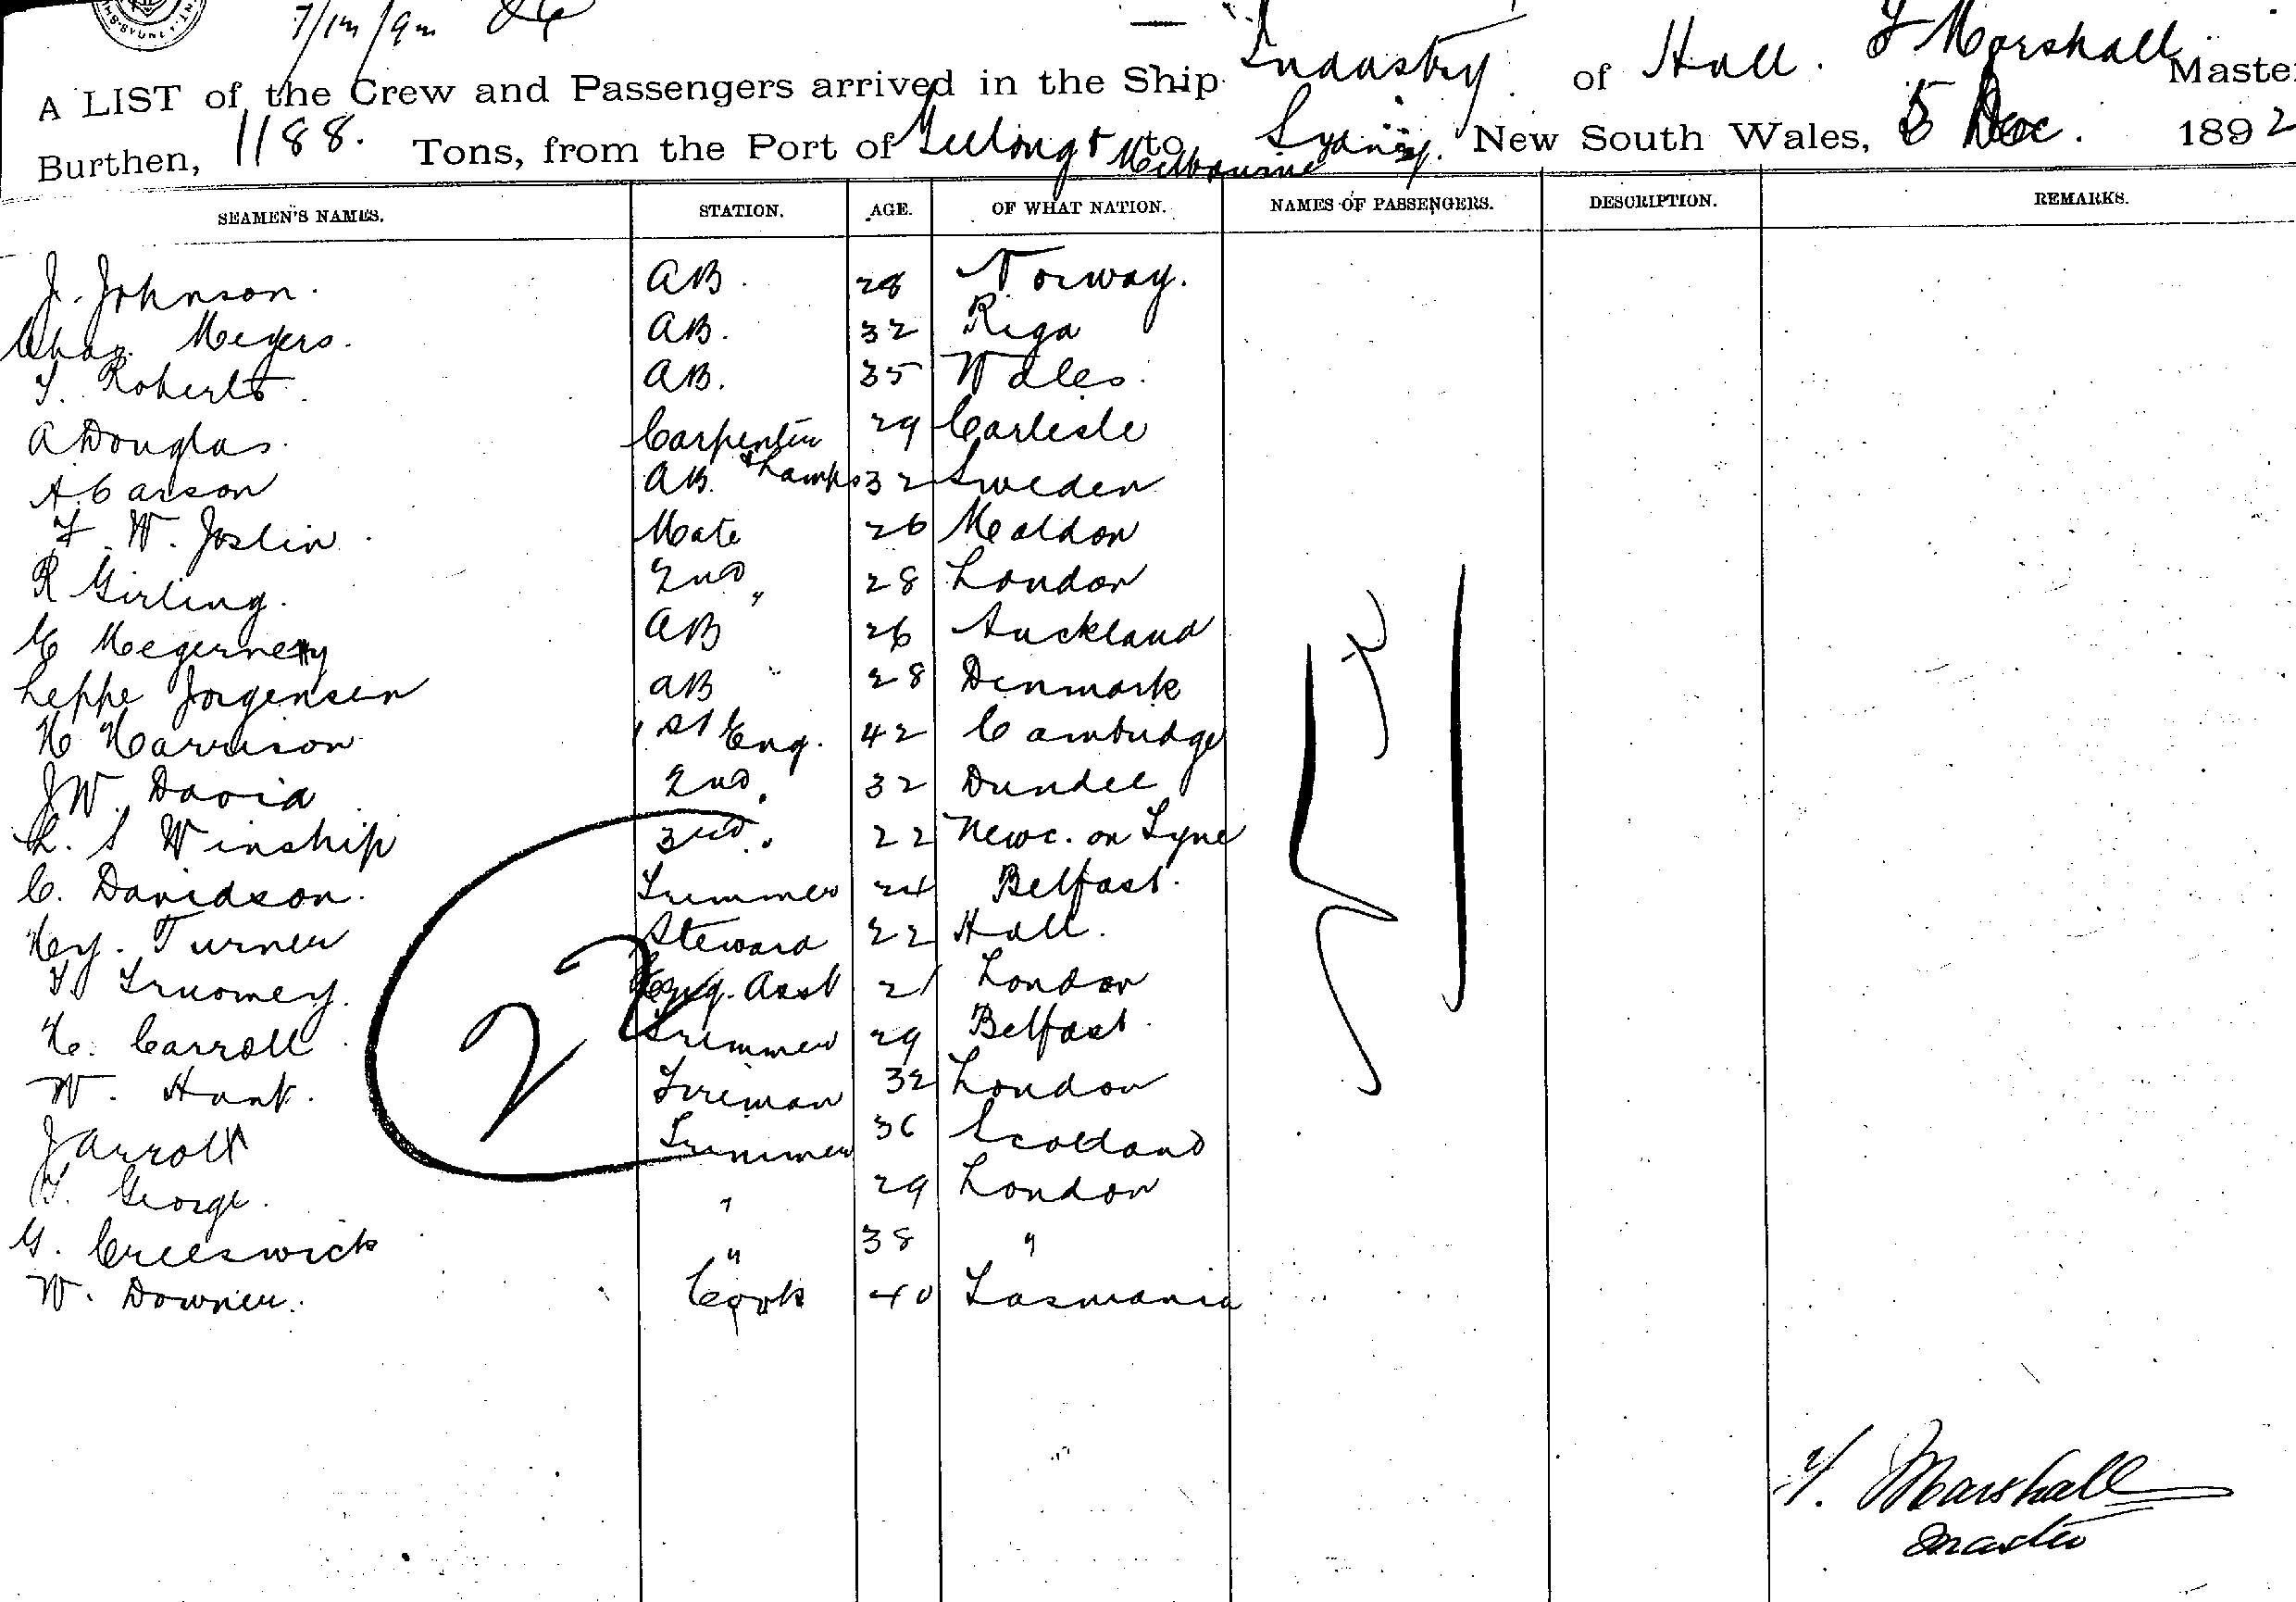 7/12/9m
A LIST of the Crew and Passengers arrived in the Ship Industry of Hull. F Marshall Master
Burthen, 1188. Tons, from the Port of Geelong & Melbourne to Sydney. New South Wales, 5 Dec. 1892
SEAMEN'S NAMES. STATION. AGE. OF WHAT NATION. NAMES OF PASSENGERS. DESCRIPTION. REMARKS.
J. Johnson. AB. 28 Norway.
Chas. Meyers. AB. 32 Riga
T. Roberts AB. 35 Wales.
A Douglas. Carpenter 29 Carlisle
A. Carson AB. & Lamps 32 Sweden
F. W. Joslin Mate 26 Maldon
R Girling. 2nd " 28 London
AB 26 Auckland
Leppe Jorgensen AB 28 Denmark
H Harrison 1st Eng. 42 Cambridge
JW. David 2nd. 32 Dundee
L. S Winship 3rd. 22 Newc. on Tyne
C. Davidson. Trimmer 24 Belfast.
Hy. Turner Steward 22 Hull.
T. Eng. Asst 21 London
H. Carroll Trimmer 29 Belfast.
W. Hunt. Fireman 32 London
J Arrott Trimmer 36 Scotland
George. " 29 London
G. Creeswick " 38 "
W. Downer. Cook 40 Tasmania
22
F. Marshall
Master